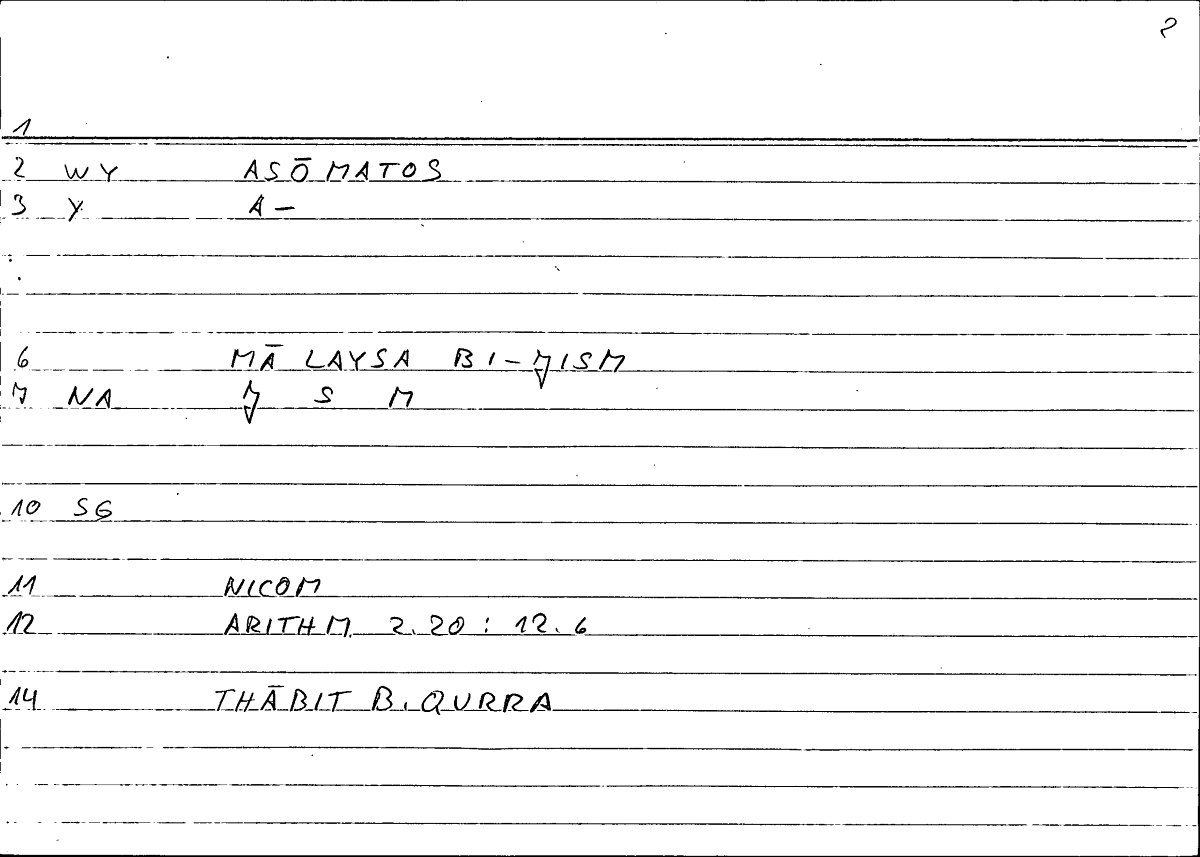 2
1
2 WY ASŌMATOS
3 Y A-
6 MĀ LAYSA BI-J̌ISM
7 NA J̌ S M
10 SG
11 NICOM
12 ARITHM 2.20 : 12.6
14 THĀBIT B. QURRA